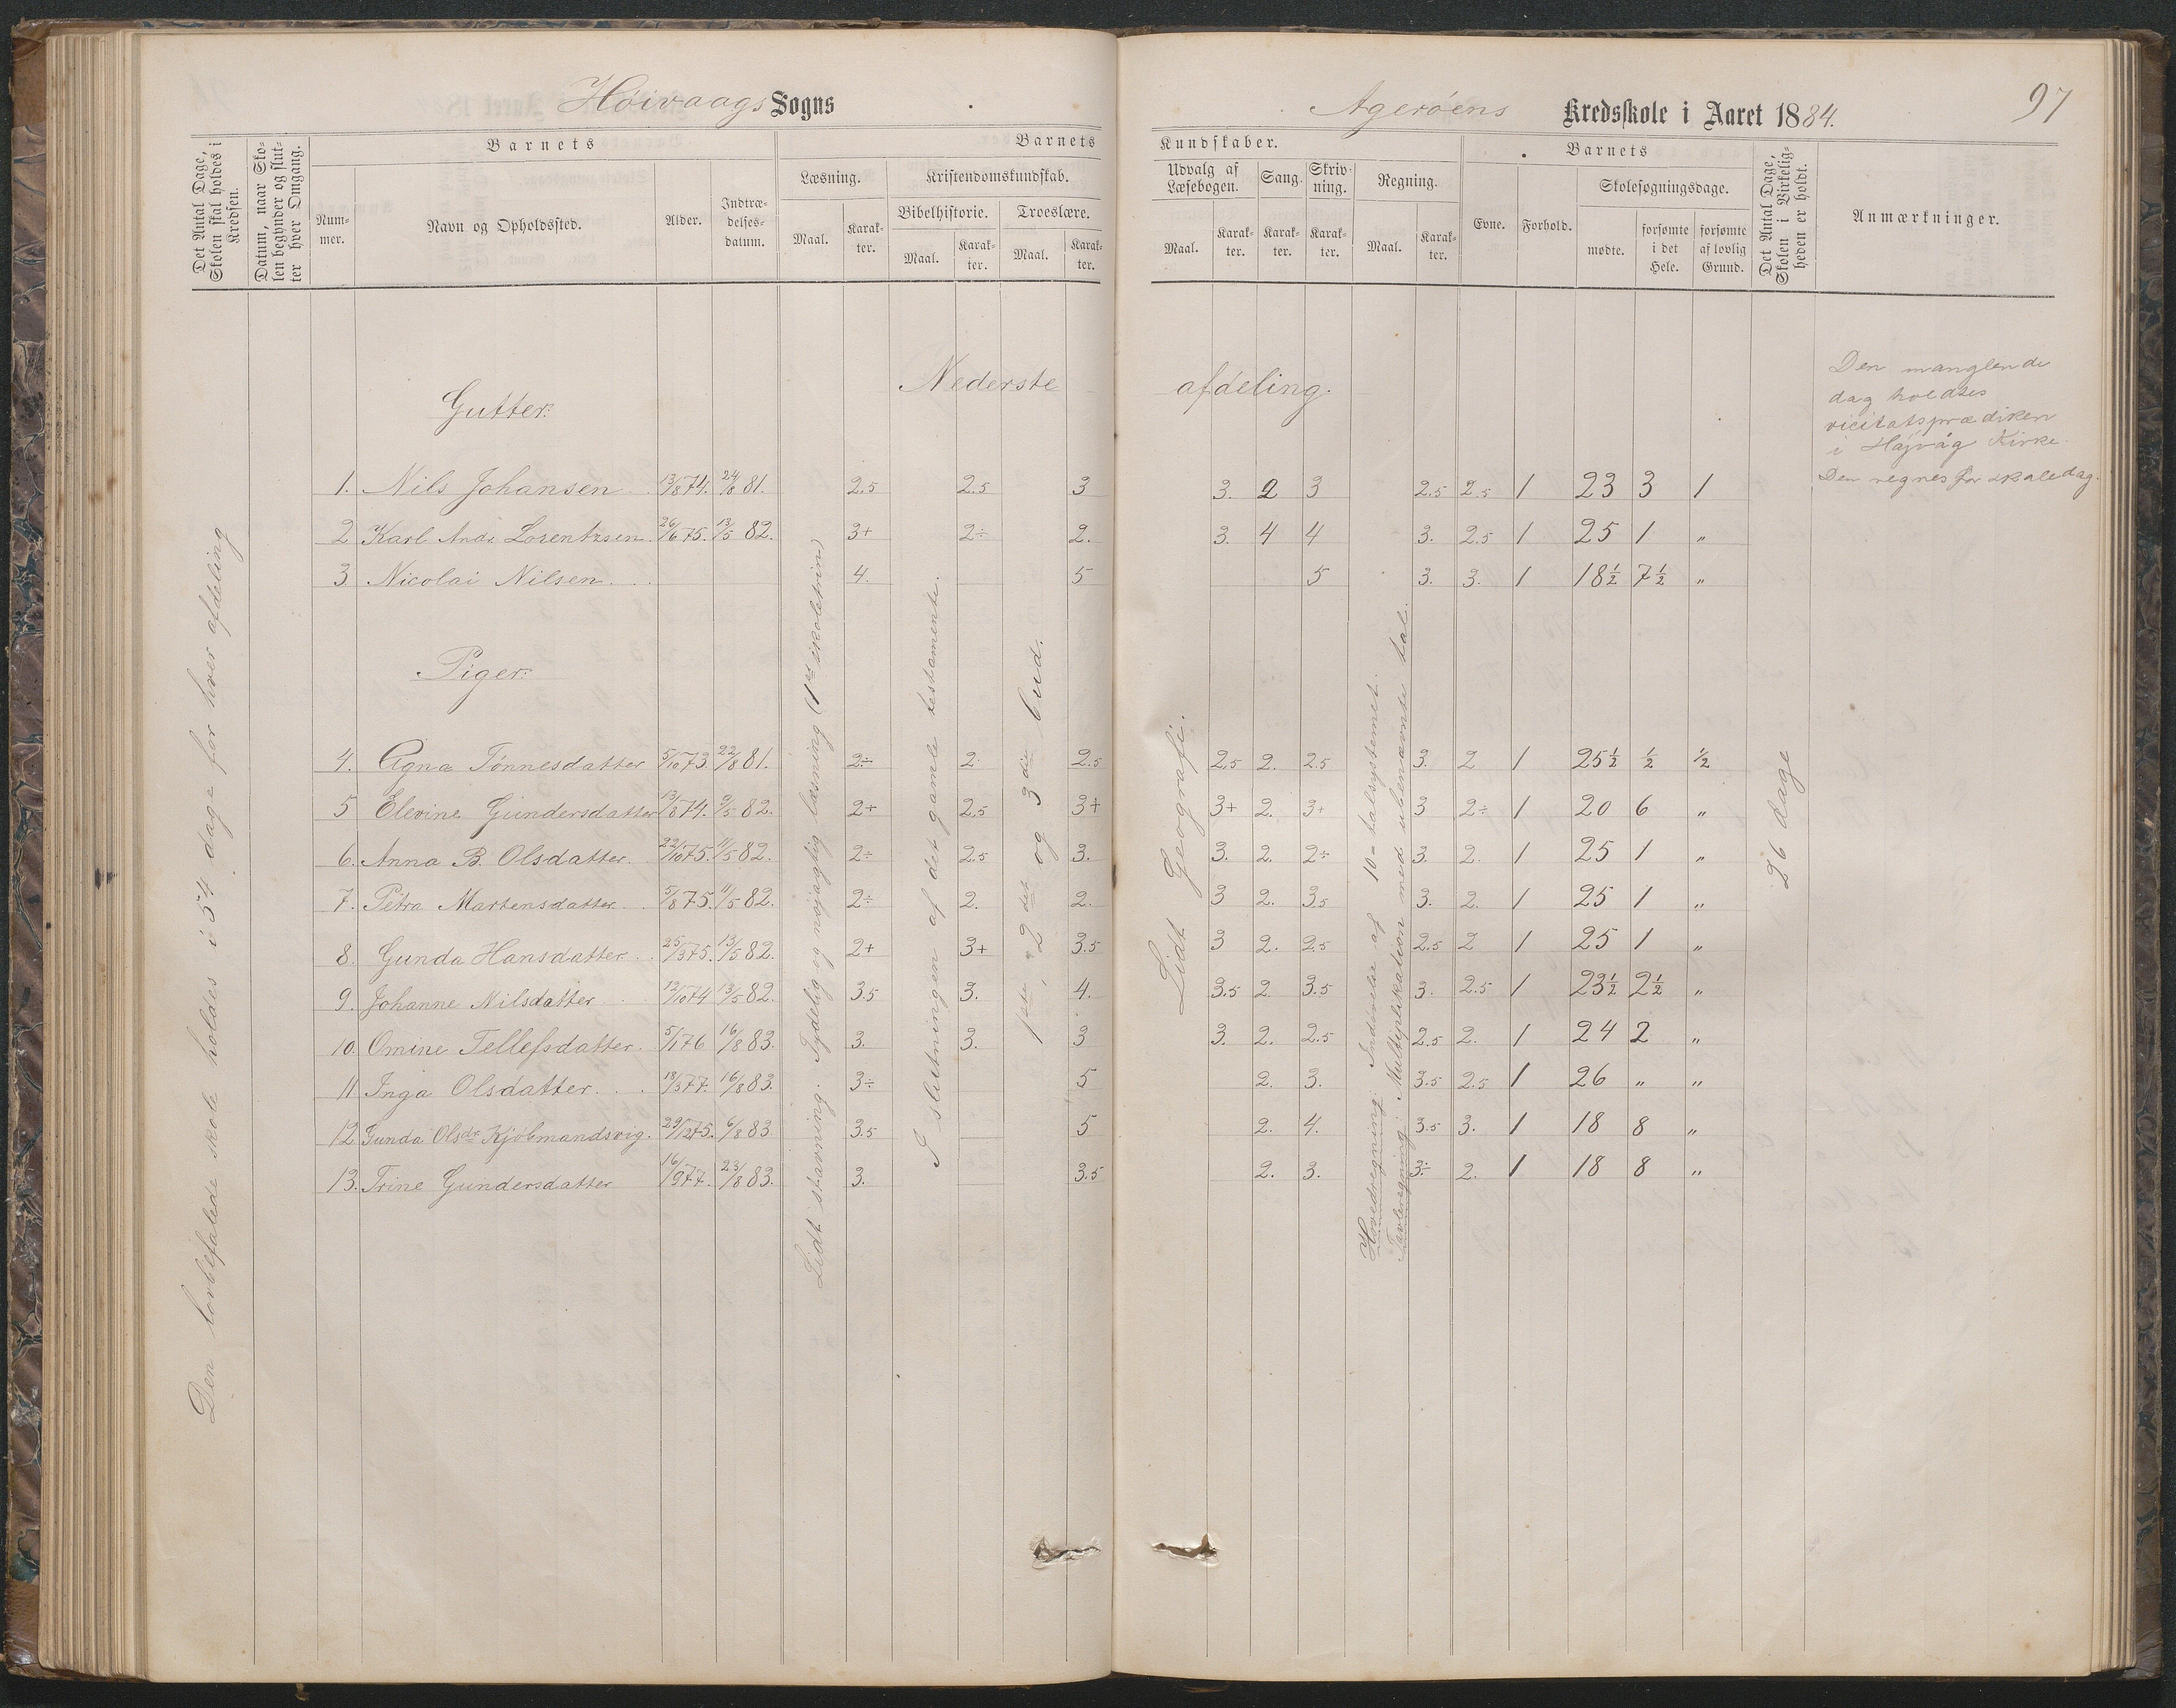 Høivaags Sogns
Agerøens Kredsskole i Aaret 1884.
97
Det Antal Dage, Skolen skal holdes i Kredsen.
Datum, naar Skolen begynder og slutter hver Omgang.
Barnets
Barnets
Kundskaber.
Barnets
Nummer.
Navn og Opholdssted.
Alder.
Indtrædelses-datum.
Læsning.
Maal.
Karakter.
Kristendomskundskab.
Bibelhistorie.
Maal.
Karakter.
Troeslære.
Maal.
Karakter.
Udvalg af Læsebogen.
Maal.
Karakter.
Sang.
Karakter.
Skrivning.
Karakter.
Regning.
Maal.
Karakter.
Evne.
Forhold.
Skolesøgningsdage.
mødte.
forsømte i det Hele.
forsømte af lovlig Grund.
Det Antal Dage, Skolen i Virkeligheden er holdt.
Anmærkninger.
Nederste afdeling.
Den manglende
dag holdtes
vicitatsprædiken
i Højvåg Kirke.
Den regnes for skoledag.
Gutter:
1. Nils Johansen 13/8 74. 24/8 81. 2.5 2.5 3 3. 2 3 2.5 2.5 1 23 3 1
2 Karl Andr. Lorentzsen 26/6 75. 13/5 82. 3+ 2÷ 2. 3. 4 4 3. 2.5 1 25 1 "
3. Nicolai Nilsen. 4. 5 5 3. 3. 1 18½ 7½ "
Piger:
4. Agna Tønnesdatter 5/10 73. 22/8 81. 2÷ 2. 2.5 2.5 2. 2.5 3. 2 1 25½ ½ ½
5 Elevine Gundersdatter 13/8 74. 9/5 82. 2+ 2.5 3+ 3+ 2. 3+ 3 2÷ 1 20 6 "
6. Anna B. Olsdatter. 22/10 75. 11/5 82. 2÷ 2.5 3. 3. 2. 2÷ 3. 2. 1 25 1 "
7. Petra Martensdatter 5/8 75. 11/5 82. 2÷ 2. 2. 3 2. 3.5 3. 2. 1 25 1 "
8. Gunda Hansdatter 25/3 75. 13/5 82. 2+ 3+ 3.5 3 2. 2.5 2.5 2 1 25 1 "
9. Johanne Nilsdatter 12/10 74 13/5 82. 3.5 3. 4. 3.5 2. 3.5 3. 2.5 1 23½ 2½ "
10. Omine Tellefsdatter. 5/1 76 16/8 83. 3. 3. 3 3. 2. 2.5 2.5 2. 1 24 2 "
11 Inga Olsdatter. 18/3 77. 16/8 83. 3÷ 5 2. 3. 3.5 2.5 1 26 " "
12 Gunda Olsdr. Kjöbmandsvig. 29/12 75. 6/8 83. 3.5 5 2. 4. 3.5 3. 1 18 8 "
13. Trine Gundersdatter 16/9 77. 23/8 83. 3. 3.5 2. 3. 3÷ 2. 1 18 8 "
Den lovbefalede skole holdes i 54 dage for hver afdeling
Lidt stavning. Tydelig og nøjagtig læsning (1ste skoletrin)
I slutningen af det gamle testamente.
1ste, 2det og 3die bud.
Lidt Geografi.
Hovedregning: Indøvelse af 10-talsystemet.
Tavleregning: Multiplikation med ubenævnte tal.
26 dage